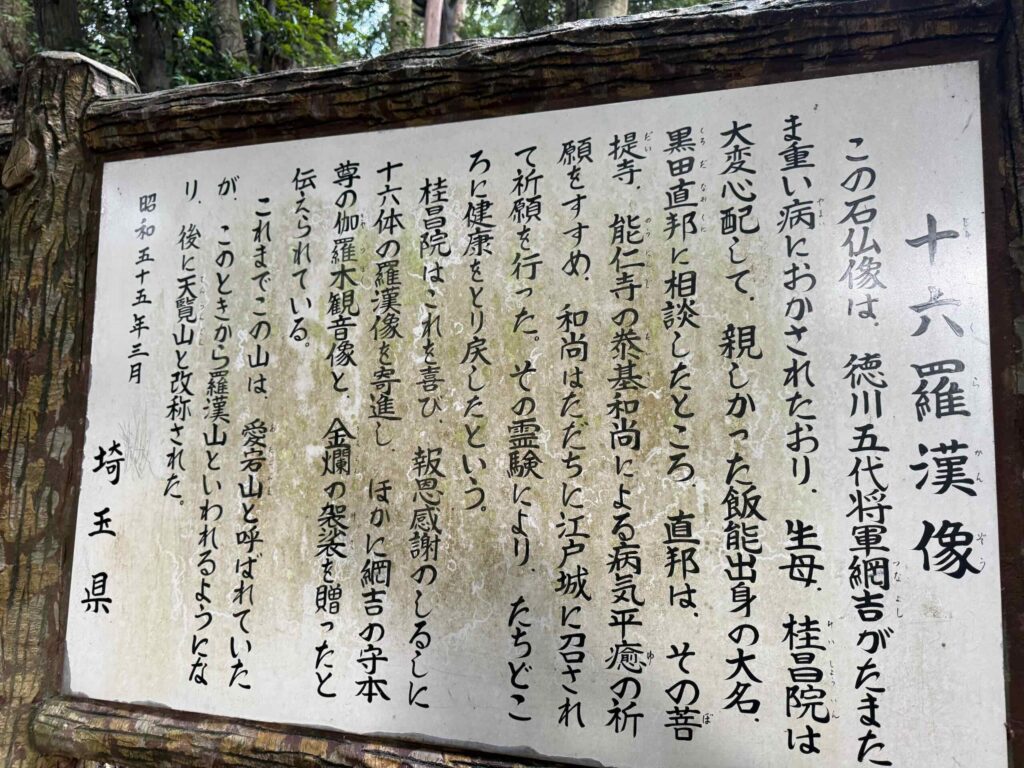 十六羅漢像
この石仏像は、徳川五代将軍網吉がたまた
ま重い病におかされたおり、生母、桂昌院は
大変心配して、親しかった飯能出身の大名、
黒田直邦に相談したところ、直邦は、その菩
提寺、能仁寺の泰基和尚による病気平癒の祈
願をすすめ、和尚はただちに江戸城に召され
て祈願を行った。その霊験により、たちどこ
ろに健康をとり戻したという。
桂昌院はこれを喜び、報恩感謝のしるしに
十六体の羅漢像を寄進し、ほかに網吉の守本
尊の伽羅木観音像と、金爛の袈裟を贈ったと
伝えられている。
これまでこの山は、愛宕山と呼ばれていた
が、このときから羅漢山といわれるようにな
り、後に天覧山と改称された。
昭和五十五年三月
埼玉県